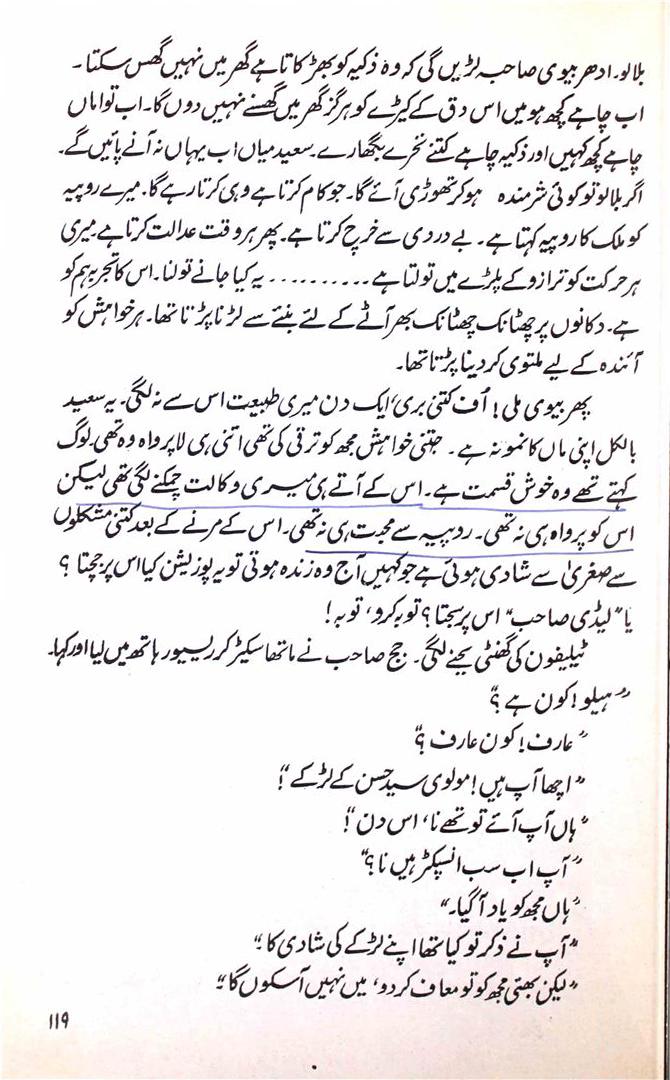 بلالو۔ ادھر بیوی صاحبہ لڑیں گی کہ وہ ذکیہ کو بھڑکاتا ہے گھر میں نہیں گھس سکتا۔
اب چاہے کچھ ہو میں اس دق کے کیڑے کو ہرگز گھر میں گھسنے نہیں دوں گا۔ اب تو اماں
چاہے کچھ کہیں اور ذکیہ چاہے کتنے نخرے بگھارے۔ سعید میاں اب یہاں نہ آنے پائیں گے۔
اگر بلالو تو کوئی شرمندہ ہو کر تھوڑی آئے گا۔ جو کام کرتا ہے وہی کرتا رہے گا۔ میرے روپیہ
کو ملک کا روپیہ کہتا ہے۔ بے دردی سے خرچ کرتا ہے۔ پھر ہر وقت عدالت کرتا ہے۔ میری
ہر حرکت کو ترازو کے پلڑے میں تولتا ہے .......... یہ کیا جانے تولنا۔ اس کا تجربہ ہم کو
ہے۔ دکانوں پر چھٹانک چھٹانک بھر آٹے کے لئے بنئے سے لڑنا پڑتا تھا۔ ہر خواہش کو
آئندہ کے لیے ملتوی کر دینا پڑتا تھا۔
پھر بیوی ملی! اُف کتنی بری، ایک دن میری طبیعت اس سے نہ لگی۔ یہ سعید
بالکل اپنی ماں کا نمونہ ہے۔ جتنی خواہش مجھ کو ترقی کی تھی اتنی ہی لاپرواہ وہ تھی۔ لوگ
کہتے تھے وہ خوش قسمت ہے۔ اس کے آتے ہی میری وکالت چمکنے لگی تھی لیکن
اس کو پرواہ ہی نہ تھی۔ روپیہ سے محبت ہی نہ تھی۔ اس کے مرنے کے بعد کتنی مشکلوں
سے صغریٰ سے شادی ہوئی ہے جو کہیں آج وہ زندہ ہوتی تو یہ پوزیشن کیا اس پر جچتا ؟
یا "لیڈی صاحب" اس پر سجتا؟ توبہ کرو، توبہ!
ٹیلیفون کی گھنٹی بجنے لگی۔ جج صاحب نے ماتھا سکیڑ کر ریسیور ہاتھ میں لیا اور کہا۔
"ہیلو! کون ہے؟"
"عارف! کون عارف؟"
"اچھا آپ ہیں! مولوی سید حسن کے لڑکے"!
"ہاں آپ آئے تو تھے نا، اس دن"!
"آپ اب سب انسپکٹر ہیں نا؟"
"ہاں مجھ کو یاد آگیا۔"
"آپ نے ذکر تو کیا تھا اپنے لڑکے کی شادی کا"۔
"لیکن بھئی مجھ کو تو معاف کر دو، میں نہیں آسکوں گا"۔
۱۱۹